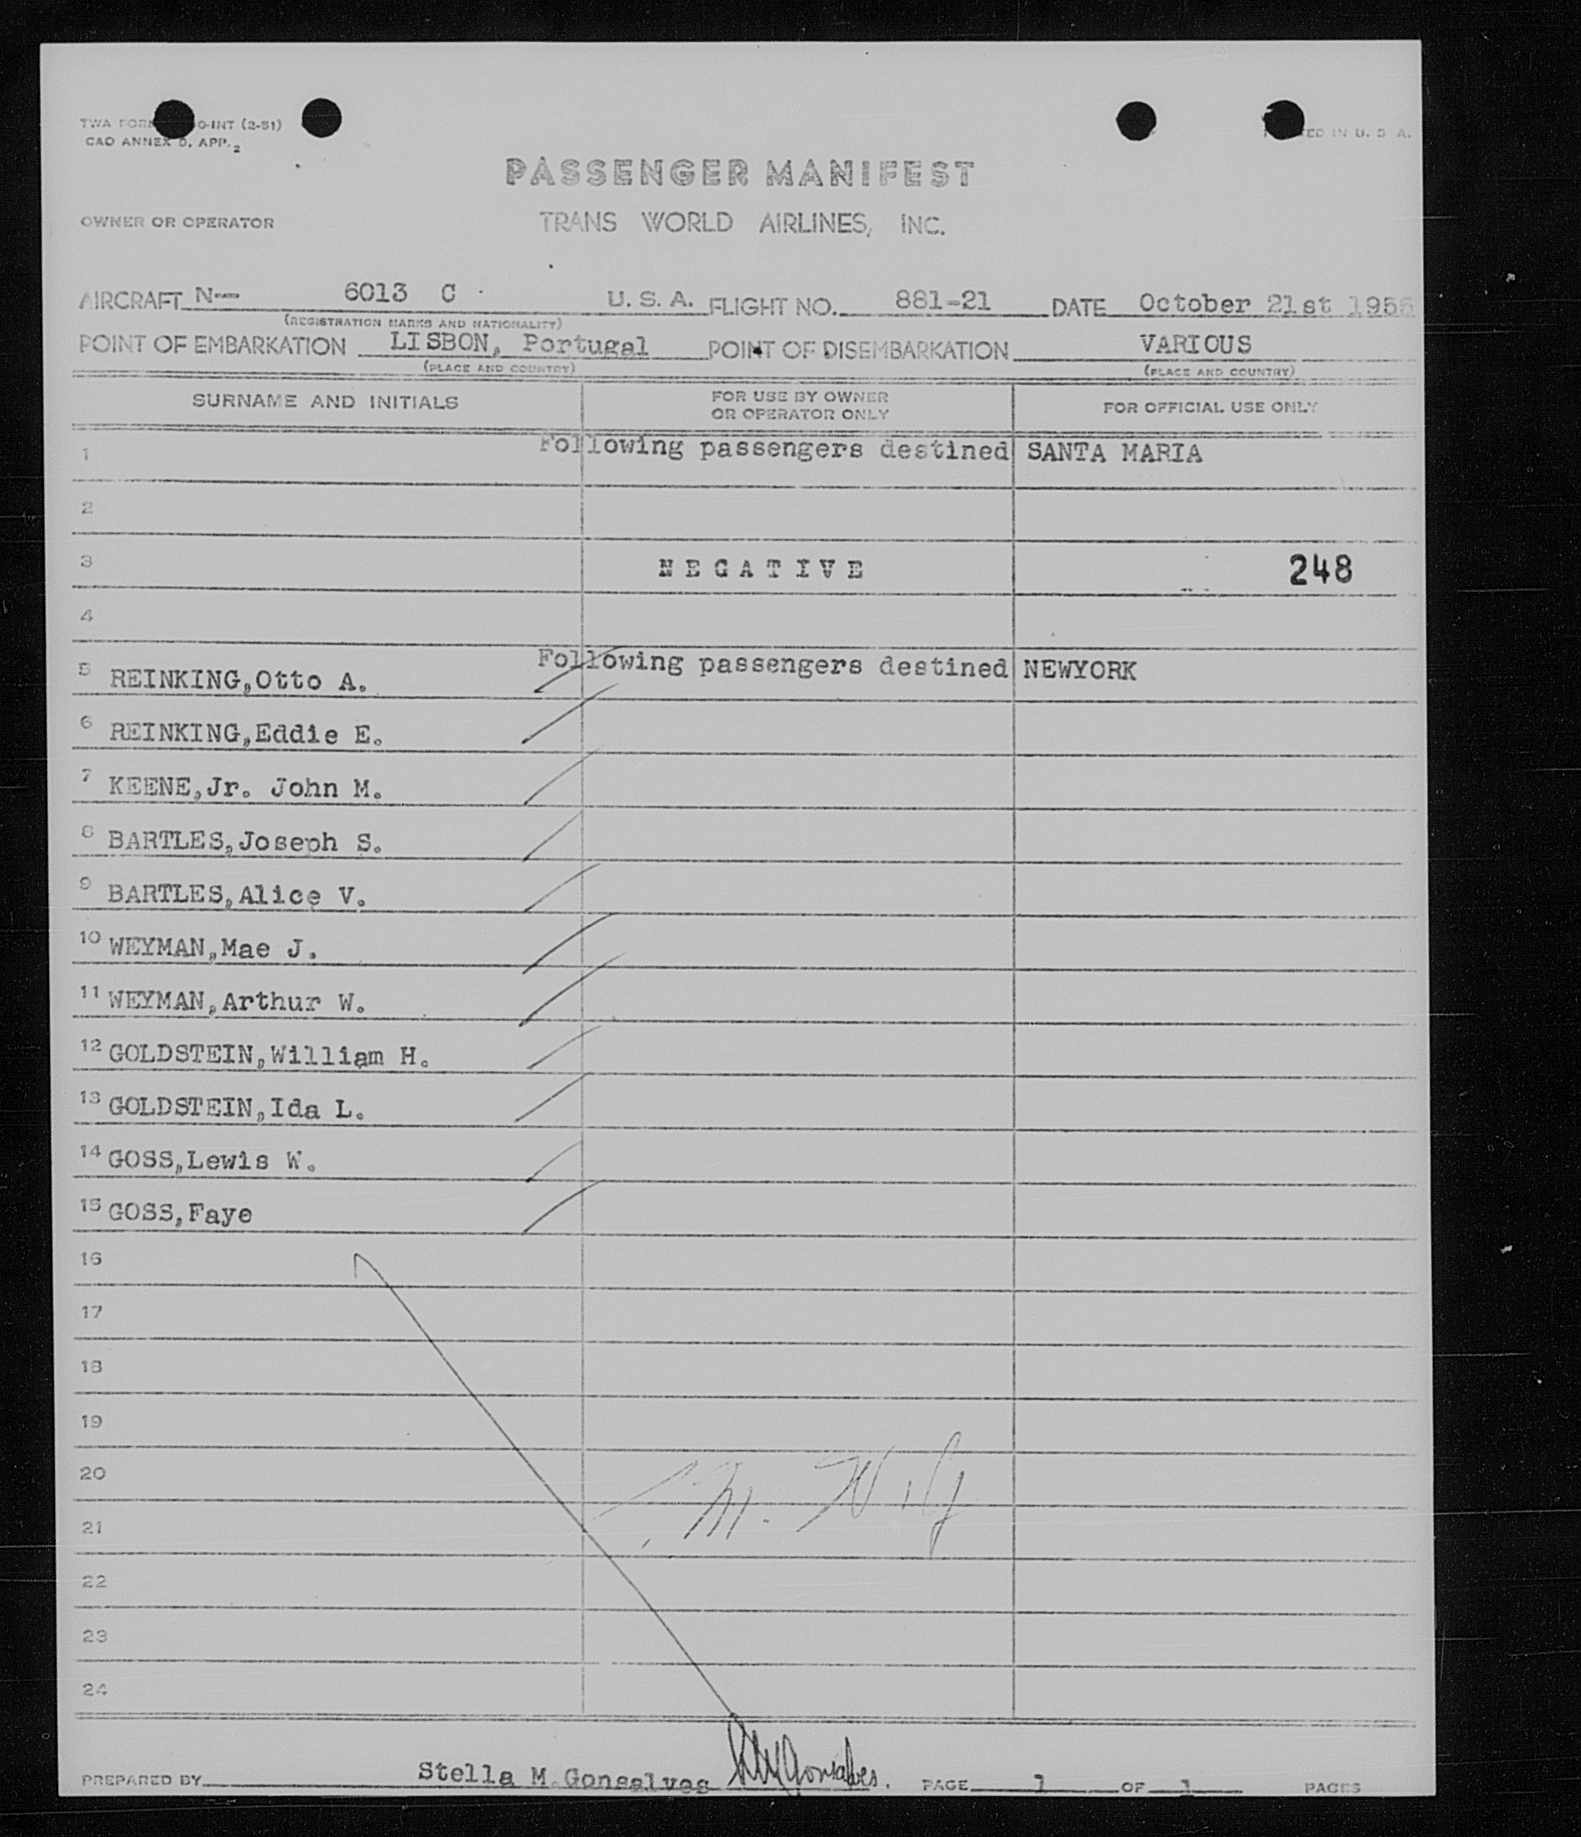 TWA FORM O-INT (2-51)
CAO ANNEX D, APP. 2
TED IN U. S. A.
PASSENGER MANIFEST
OWNER OR OPERATOR TRANS WORLD AIRLINES, INC.
AIRCRAFT N-- 6013 C U. S. A. FLIGHT NO. 881-21 DATE October 21st 195
(REGISTRATION MARKS AND NATIONALITY)
POINT OF EMBARKATION LISBON, Portugal POINT OF DISEMBARKATION VARIOUS
(PLACE AND COUNTRY) (PLACE AND COUNTRY)
SURNAME AND INITIALS FOR USE BY OWNER OR OPERATOR ONLY FOR OFFICIAL USE ONLY
1 Following passengers destined SANTA MARIA
2
3 N E G A T I V E 248
4
5 REINKING,Otto A. Following passengers destined NEWYORK
6 REINKING,Eddie E.
7 KEENE,Jr. John M.
8 BARTLES,Joseph S.
9 BARTLES,Alice V.
10 WEYMAN,Mae J.
11 WEYMAN,Arthur W.
12 GOLDSTEIN,William H.
13 GOLDSTEIN,Ida L.
14 GOSS,Lewis W.
15 GOSS,Faye
16
17
18
19
20
21
22
23
24
PREPARED BY Stella M.Gonsalves SMGonsalves. PAGE 1 OF 1 PAGES